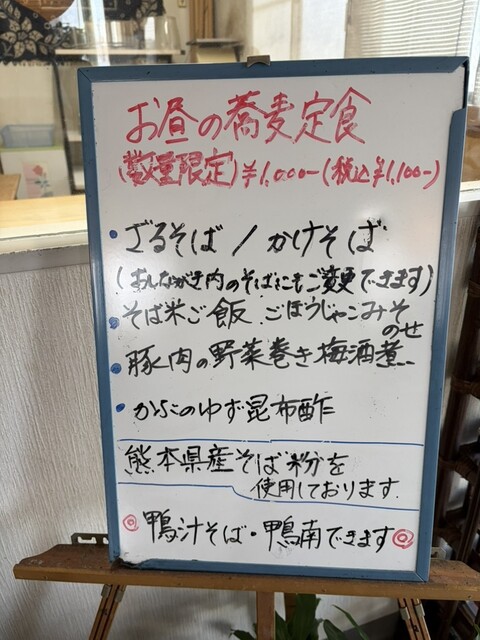 お昼の蕎麦定食
(数量限定)¥1,000-(税込¥1,100-)
・ざるそば / かけそば
(おしながき内のそばにもご変更できます)
・そば米ご飯 ごぼうじゃこみそ
のせ
・豚肉の野菜巻き梅酒煮
・かぶのゆず昆布酢
熊本県産そば粉を
使用しております.
◎鴨汁そば・鴨南できます◎